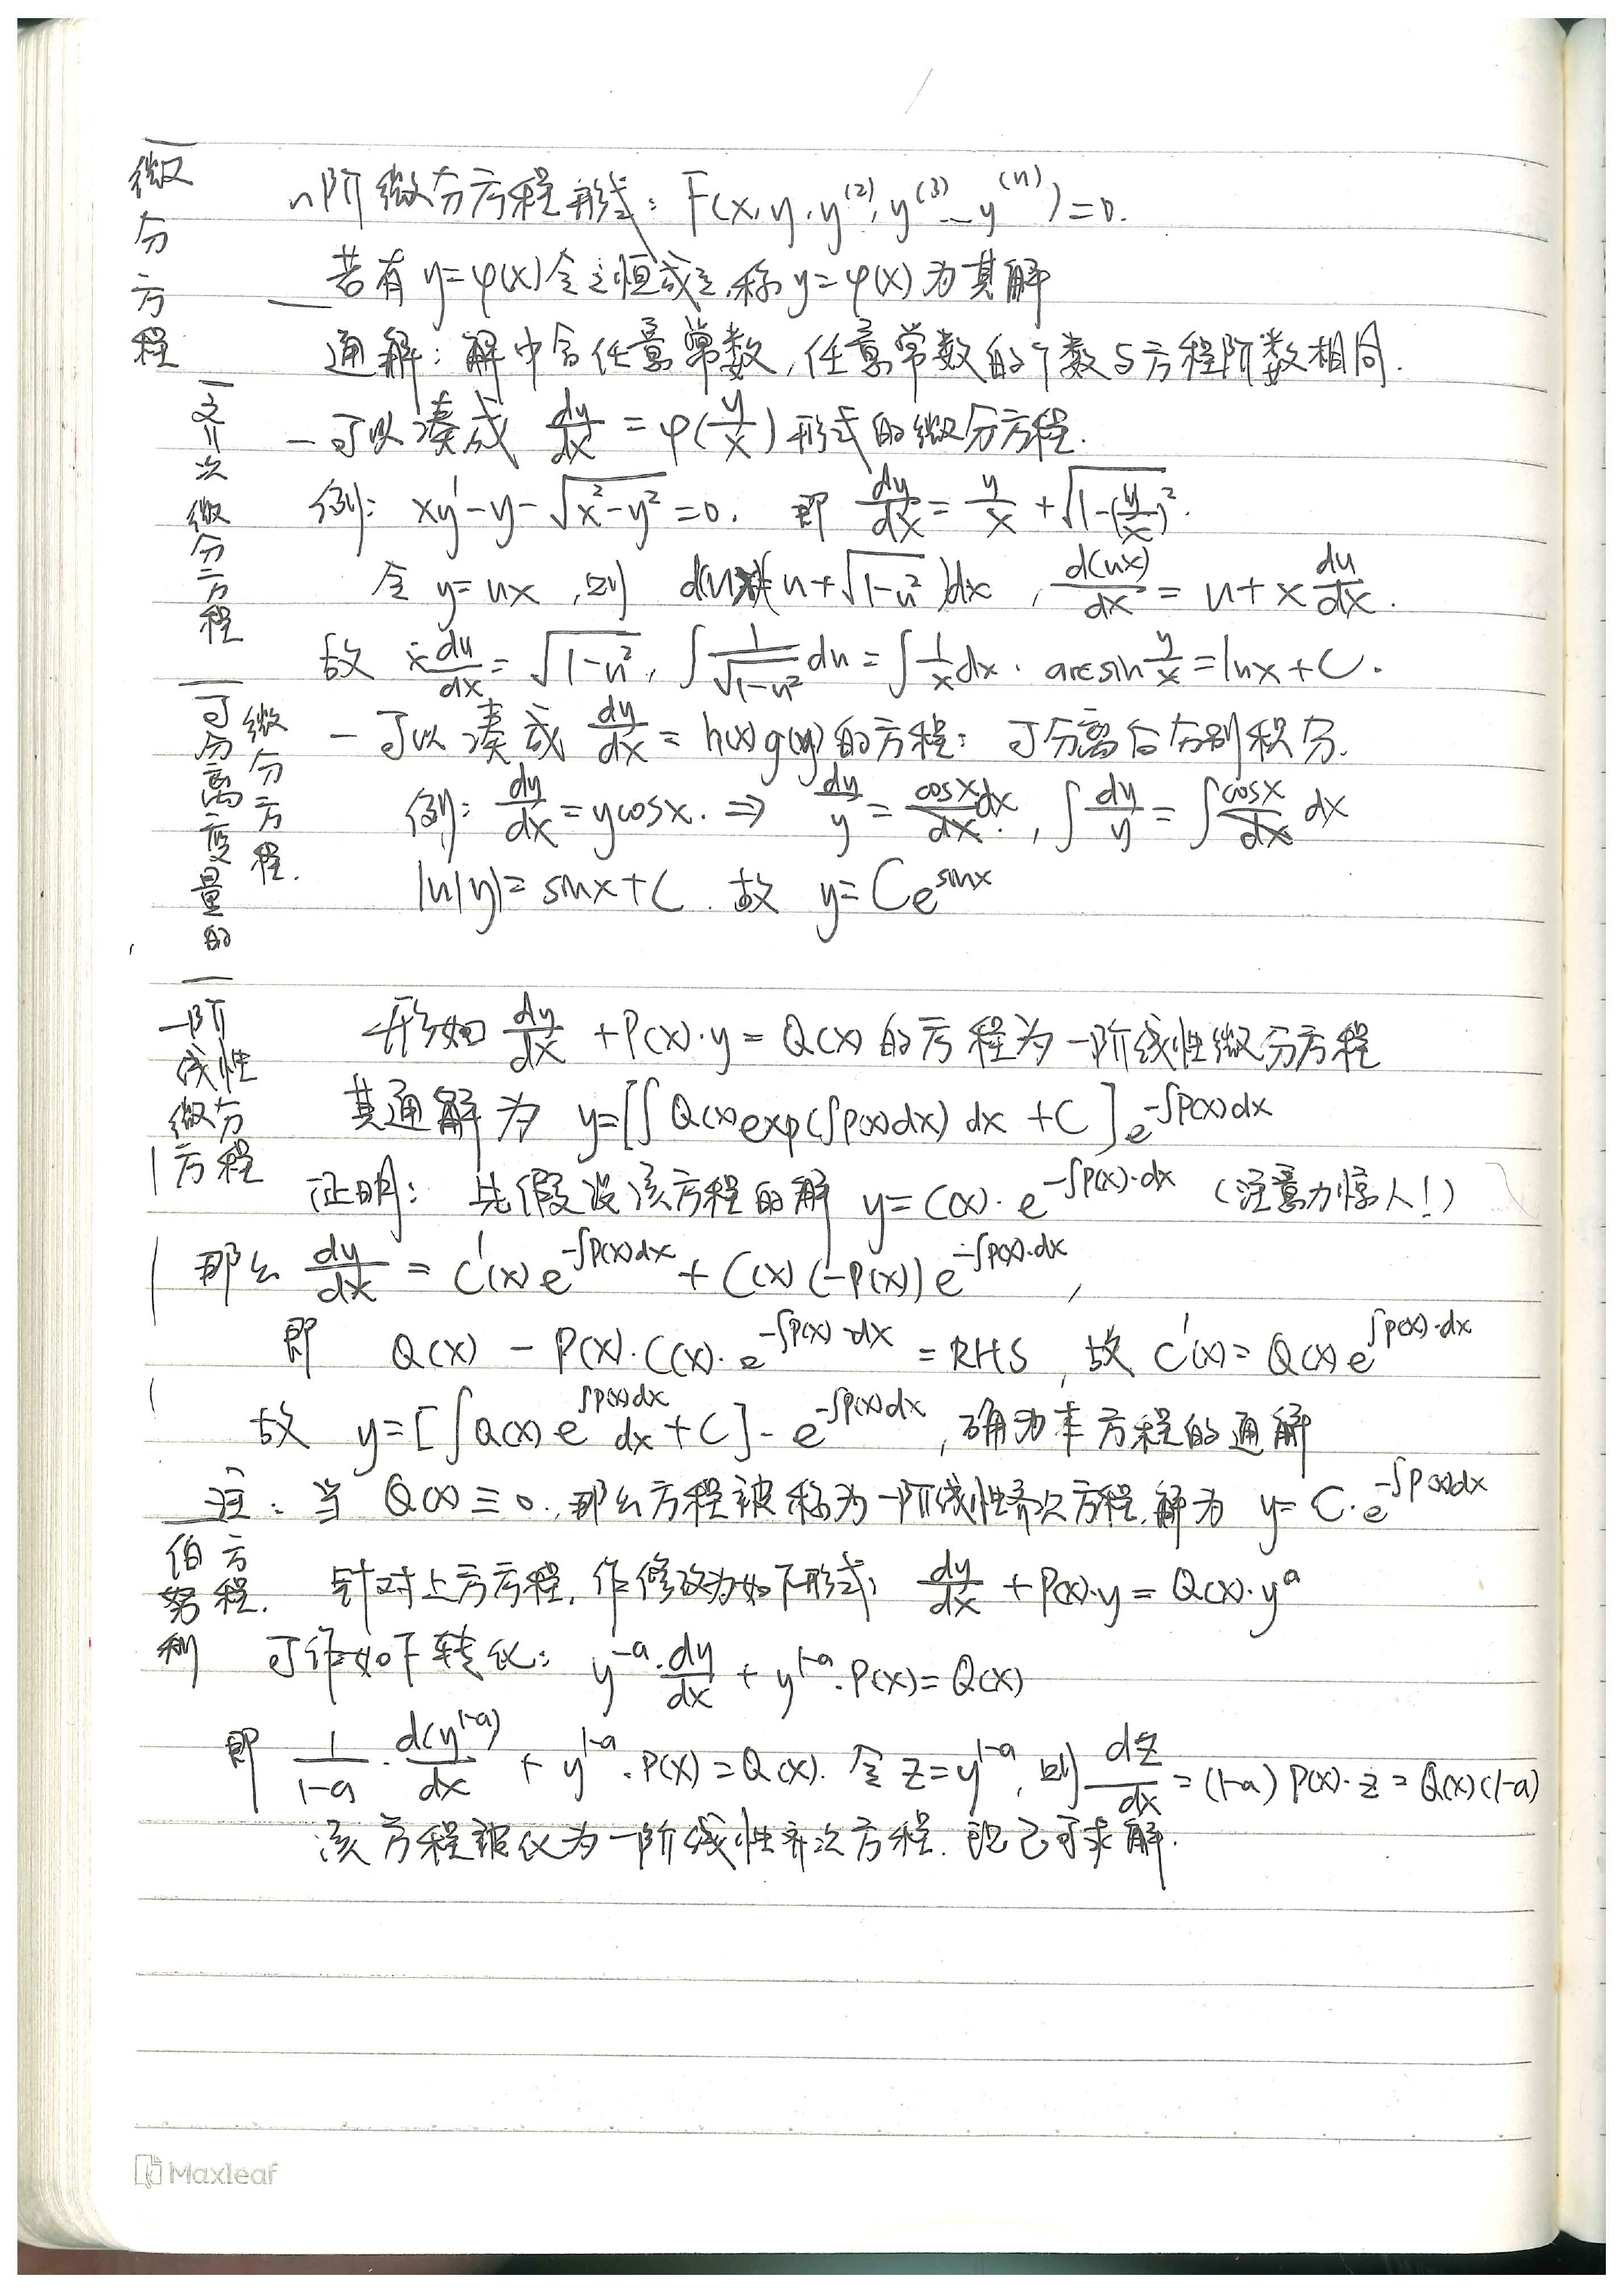 微分方程
n阶微分方程形式: F(x,y,y^(2),y^(3)…y^(n))=0.
若有 y=φ(x)令之恒成立,称 y=φ(x) 为其解
通解: 解中含任意常数,任意常数的个数与方程阶数相同.
齐次微分方程
— 可以凑成 dy/dx = φ(y/x) 形式的微分方程.
例: xy'-y-√(x²-y²)=0. 即 dy/dx = y/x + √(1-(y/x)²).
令 y=ux ,则 d(ux)=(u+√(1-u²))dx , d(ux)/dx = u+x du/dx .
故 x du/dx = √(1-u²), ∫ 1/√(1-u²) du = ∫ 1/x dx . arcsin y/x = lnx+C .
可分离变量的微分方程.
— 可以凑成 dy/dx = h(x)g(y) 的方程: 可分离后分别积分.
例: dy/dx = ycosx. ⇒ dy/y = cosx dx , ∫ dy/y = ∫ cosx dx
ln|y|= sinx+C . 故 y= Ce^(sinx)
一阶线性微分方程
形如 dy/dx + P(x)·y = Q(x) 的方程为一阶线性微分方程
其通解为 y=[∫ Q(x)exp(∫P(x)dx) dx +C] e^(-∫P(x)dx)
证明: 先假设该方程的解 y= C(x)· e^(-∫P(x)·dx) (注意力惊人!)
那么 dy/dx = C'(x) e^(-∫P(x)dx) + C(x) (-P(x)) e^(-∫P(x)·dx) ,
即 Q(x) - P(x)·C(x)· e^(-∫P(x)·dx) = RHS , 故 C'(x)= Q(x) e^(∫P(x)·dx)
故 y=[∫Q(x) e^(∫P(x)dx) dx+C]· e^(-∫P(x)dx) , 确为本方程的通解
注: 当 Q(x)≡0. 那么方程被称为一阶线性齐次方程,解为 y= C·e^(-∫P(x)dx)
伯努利方程.
针对上方方程, 作修改为如下形式: dy/dx + P(x)·y = Q(x)·y^a
可作如下转化: y^(-a)· dy/dx + y^(1-a)·P(x)= Q(x)
即 1/(1-a) · d(y^(1-a))/dx + y^(1-a)·P(x)=Q(x). 令 z=y^(1-a), 则 dz/dx = (1-a) P(x)·z = Q(x)(1-a)
该方程被化为一阶线性齐次方程. 已可求解.
Maxleaf